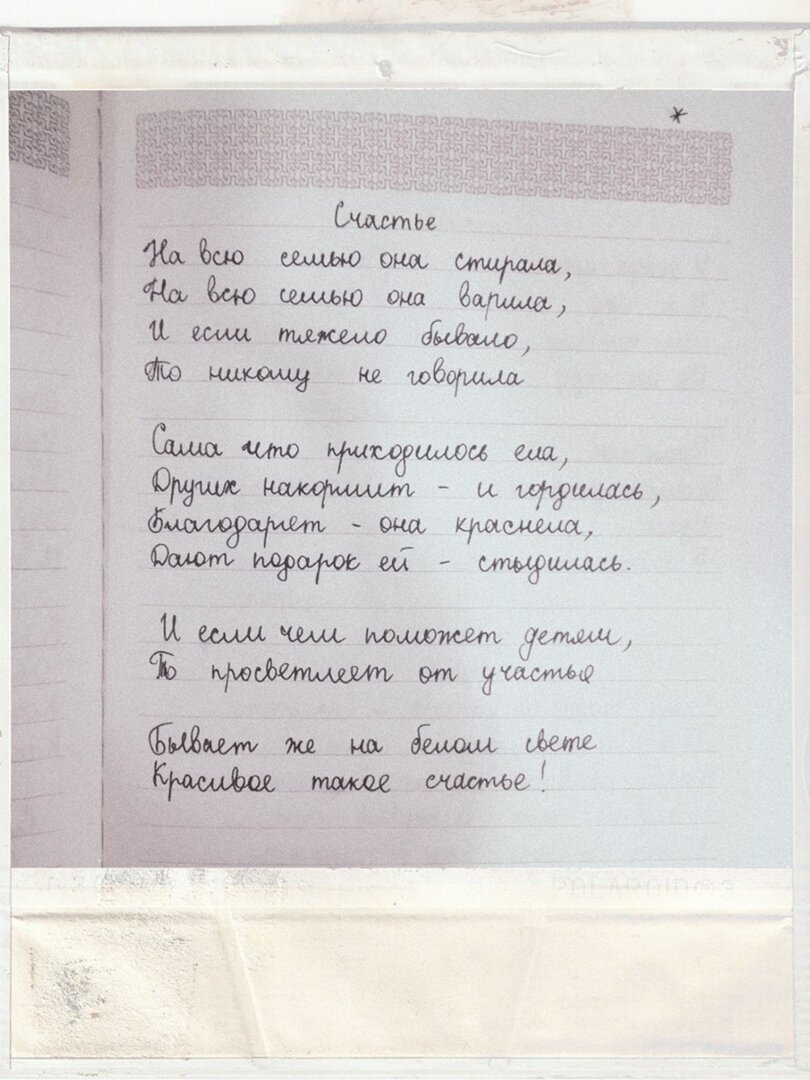 *
Счастье
На всю семью она стирала,
На всю семью она варила,
И если тяжело бывало,
То никому не говорила
Сама что приходилось ела,
Других накормит - и гордилась,
Благодарят - она краснела,
Дают подарок ей - стыдилась.
И если чем поможет детям,
То просветлеет от участья
Бывает же на белом свете
Красивое такое счастье!